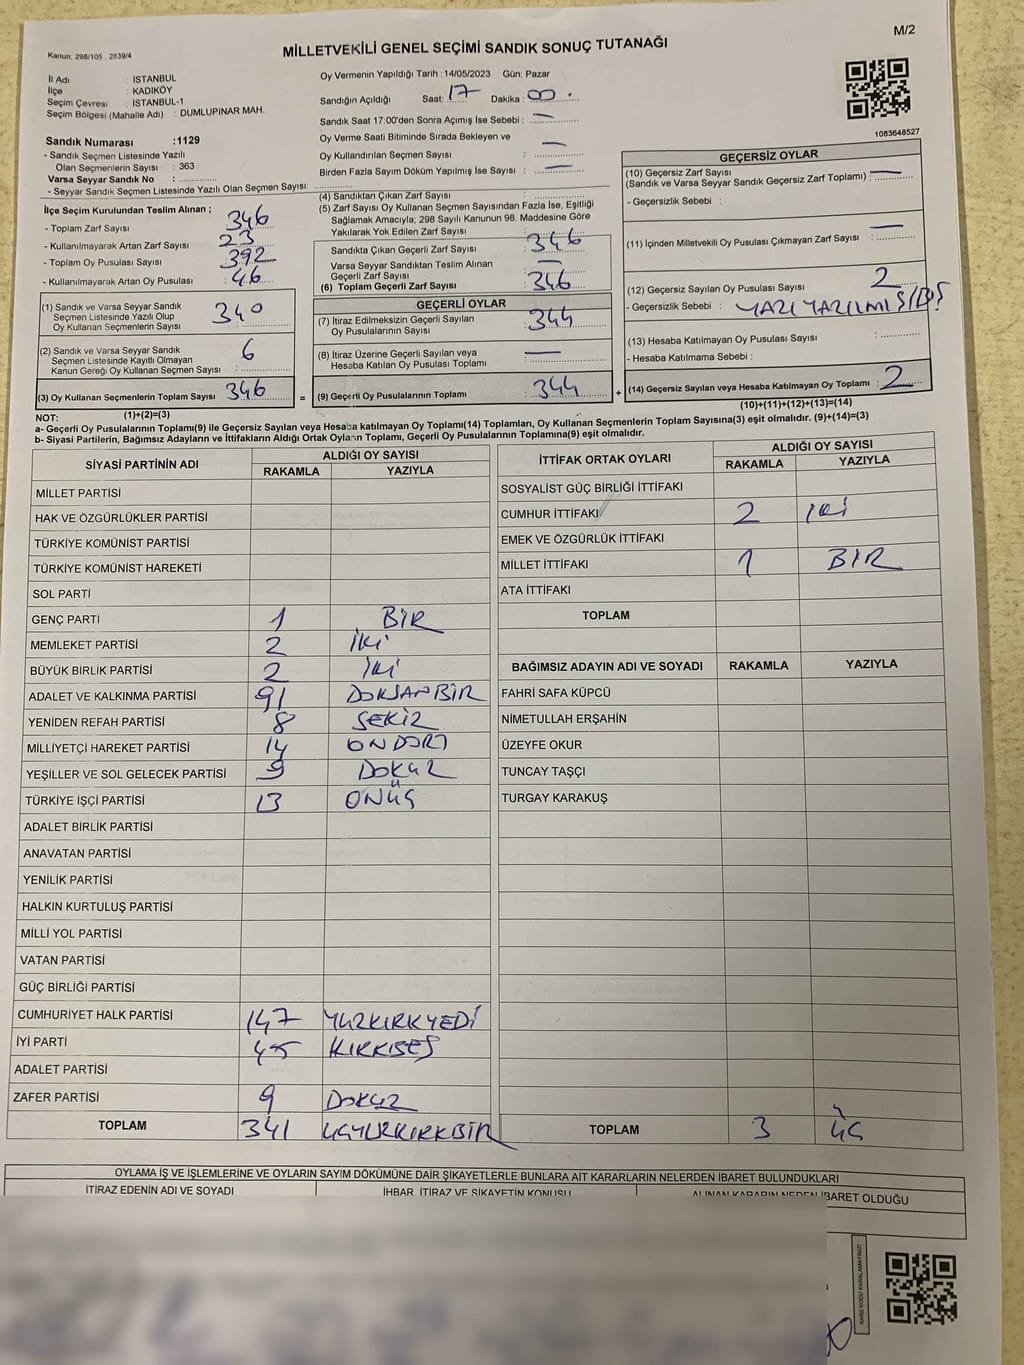 M/2
Kanun: 298/105 . 2839/4
MİLLETVEKİLİ GENEL SEÇİMİ SANDIK SONUÇ TUTANAĞI
İl Adı : İSTANBUL
İlçe : KADIKÖY
Seçim Çevresi : İSTANBUL-1
Seçim Bölgesi (Mahalle Adı) : DUMLUPINAR MAH.
Oy Vermenin Yapıldığı Tarih : 14/05/2023 Gün: Pazar
Sandığın Açıldığı Saat: 17 Dakika : 00
Sandık Saat 17:00'den Sonra Açımış İse Sebebi : —
Oy Verme Saati Bitiminde Sırada Bekleyen ve
Oy Kullandırılan Seçmen Sayısı : —
Birden Fazla Sayım Döküm Yapılmış İse Sayısı : —
1083648527
Sandık Numarası :1129
- Sandık Seçmen Listesinde Yazılı
Olan Seçmenlerin Sayısı : 363
Varsa Seyyar Sandık No :
- Seyyar Sandık Seçmen Listesinde Yazılı Olan Seçmen Sayısı:
İlçe Seçim Kurulundan Teslim Alınan ;
- Toplam Zarf Sayısı : 346
- Kullanılmayarak Artan Zarf Sayısı : 23
- Toplam Oy Pusulası Sayısı : 392
- Kullanılmayarak Artan Oy Pusulası : 46
(1) Sandık ve Varsa Seyyar Sandık
Seçmen Listesinde Yazılı Olup
Oy Kullanan Seçmenlerin Sayısı : 340
(2) Sandık ve Varsa Seyyar Sandık
Seçmen Listesinde Kayıtlı Olmayan
Kanun Gereği Oy Kullanan Seçmen Sayısı : 6
(3) Oy Kullanan Seçmenlerin Toplam Sayısı : 346
(1)+(2)=(3)
(4) Sandıktan Çıkan Zarf Sayısı
(5) Zarf Sayısı Oy Kullanan Seçmen Sayısından Fazla İse, Eşitliği
Sağlamak Amacıyla; 298 Sayılı Kanunun 98. Maddesine Göre
Yakılarak Yok Edilen Zarf Sayısı :
Sandıkta Çıkan Geçerli Zarf Sayısı : 346
Varsa Seyyar Sandıktan Teslim Alınan
Geçerli Zarf Sayısı : —
(6) Toplam Geçerli Zarf Sayısı : 346
GEÇERLİ OYLAR
(7) İtiraz Edilmeksizin Geçerli Sayılan
Oy Pusulalarının Sayısı : 344
(8) İtiraz Üzerine Geçerli Sayılan veya
Hesaba Katılan Oy Pusulası Toplamı : —
= (9) Geçerli Oy Pusulalarının Toplamı : 344 +
GEÇERSİZ OYLAR
(10) Geçersiz Zarf Sayısı
(Sandık ve Varsa Seyyar Sandık Geçersiz Zarf Toplamı) : —
- Geçersizlik Sebebi :
(11) İçinden Milletvekili Oy Pusulası Çıkmayan Zarf Sayısı : —
(12) Geçersiz Sayılan Oy Pusulası Sayısı : 2
- Geçersizlik Sebebi : YAZI YAZILMIŞ/
(13) Hesaba Katılmayan Oy Pusulası Sayısı :
- Hesaba Katılmama Sebebi :
(14) Geçersiz Sayılan veya Hesaba Katılmayan Oy Toplamı : 2
(10)+(11)+(12)+(13)=(14)
NOT:
a- Geçerli Oy Pusulalarının Toplamı(9) ile Geçersiz Sayılan veya Hesaba katılmayan Oy Toplamı(14) Toplamları, Oy Kullanan Seçmenlerin Toplam Sayısına(3) eşit olmalıdır. (9)+(14)=(3)
b- Siyasi Partilerin, Bağımsız Adayların ve İttifakların Aldığı Ortak Oyların Toplamı, Geçerli Oy Pusulalarının Toplamına(9) eşit olmalıdır.
SİYASİ PARTİNİN ADI ALDIĞI OY SAYISI
RAKAMLA YAZIYLA
MİLLET PARTİSİ
HAK VE ÖZGÜRLÜKLER PARTİSİ
TÜRKİYE KOMÜNİST PARTİSİ
TÜRKİYE KOMÜNİST HAREKETİ
SOL PARTİ
GENÇ PARTİ 1 BİR
MEMLEKET PARTİSİ 2 İKİ
BÜYÜK BİRLİK PARTİSİ 2 İKİ
ADALET VE KALKINMA PARTİSİ 91 DOKSANBİR
YENİDEN REFAH PARTİSİ 8 SEKİZ
MİLLİYETÇİ HAREKET PARTİSİ 14 ONDÖRT
YEŞİLLER VE SOL GELECEK PARTİSİ 9 DOKUZ
TÜRKİYE İŞÇİ PARTİSİ 13 ONÜÇ
ADALET BİRLİK PARTİSİ
ANAVATAN PARTİSİ
YENİLİK PARTİSİ
HALKIN KURTULUŞ PARTİSİ
MİLLİ YOL PARTİSİ
VATAN PARTİSİ
GÜÇ BİRLİĞİ PARTİSİ
CUMHURİYET HALK PARTİSİ 147 YÜZKIRKYEDİ
İYİ PARTİ 45 KIRKBEŞ
ADALET PARTİSİ
ZAFER PARTİSİ 9 DOKUZ
TOPLAM 341 ÜÇYÜZKIRKBİR
İTTİFAK ORTAK OYLARI ALDIĞI OY SAYISI
RAKAMLA YAZIYLA
SOSYALİST GÜÇ BİRLİĞİ İTTİFAKI
CUMHUR İTTİFAKI 2 İKİ
EMEK VE ÖZGÜRLÜK İTTİFAKI
MİLLET İTTİFAKI 1 BİR
ATA İTTİFAKI
TOPLAM
BAĞIMSIZ ADAYIN ADI VE SOYADI RAKAMLA YAZIYLA
FAHRİ SAFA KÜPCÜ
NİMETULLAH ERŞAHİN
ÜZEYFE OKUR
TUNCAY TAŞÇI
TURGAY KARAKUŞ
TOPLAM 3 ÜÇ
OYLAMA İŞ VE İŞLEMLERİNE VE OYLARIN SAYIM DÖKÜMÜNE DAİR ŞİKAYETLERLE BUNLARA AİT KARARLARIN NELERDEN İBARET BULUNDUKLARI
İTİRAZ EDENİN ADI VE SOYADI İHBAR, İTİRAZ VE ŞİKAYETİN KONUSU ALINAN KARARIN NEDEN İBARET OLDUĞU
KARE KODU KARALAMAYINIZ!